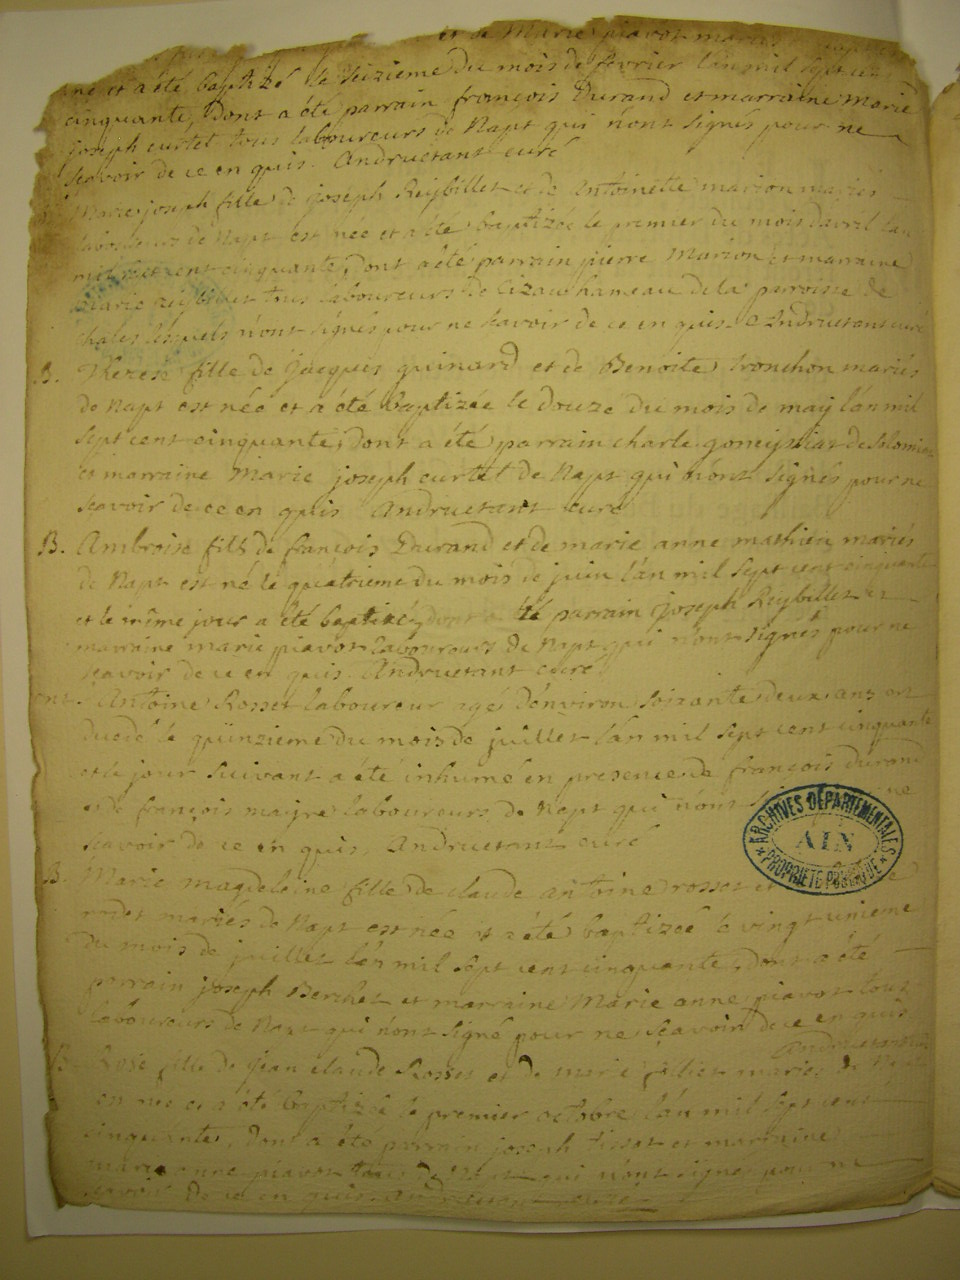 et de Marie piavot mariés
né et a été baptizé le seizieme du mois de fevrier l'an mil sept cent
cinquante, dont a été parrain françois Durand et marraine Marie
joseph curtet tous laboureurs de Napt qui n'ont signés pour ne
scavoir de ce en quis. Andruetant curé
Marie joseph fille de joseph Reybillet et de Antoinette marion mariés
laboureurs de Napt est née et a été baptizée le premier du mois d'avril l'an
mil sept cent cinquante, dont a été parrain pierre Marion et marraine
marie tous laboureurs de hameau de la paroisse de
lesquels n'ont signés pour ne scavoir de ce en quis. Andruetant curé
B. Therese fille de jacques guinard et de Benoite tronchon mariés
de Napt est née et a été baptizée le douze du mois de may l'an mil
sept cent cinquante, dont a été parrain charle de
et marraine Marie joseph curtet de Napt qui n'ont signés pour ne
scavoir de ce en quis Andruetant curé
B. Ambroise fils de françois Durand et de marie anne mathieu mariés
de Napt est né le quatrieme du mois de juin l'an mil sept cent cinquante
et le même jour a été baptizé, dont a été parrain joseph Reybillet et
marraine marie piavot laboureurs de Napt qui n'ont signés pour ne
scavoir de ce en quis. Andruetant curé
Antoine Rosset laboureur agé d'environ soixante deux ans est
decedé le quinzieme du mois de juillet l'an mil sept cent cinquante
et le jour suivant a été inhumé en presence de françois durand
et de françois maire laboureurs de Napt qui n'ont ne
scavoir de ce en quis. Andruetant curé
B. Marie magdeleine fille de claude antoine rosset et
mariés de Napt est née et a été baptizée le vingt unieme
du mois de juillet l'an mil sept cent cinquante, dont a été
parrain joseph Berchet et marraine Marie anne piavot tous
laboureurs de Napt qui n'ont signé pour ne sçavoir de ce en quis
Andruetant
B. Rose fille de jean claude Rosset et de marie mariés de Napt
est née et a été baptizée le premier octobre l'an mil sept cent
cinquante, dont a été parrain joseph tissot et marraine
marie anne piavot tous de Napt qui n'ont signés pour ne
scavoir de ce en quis. Andruetant curé
ARCHIVES DÉPARTEMENTALES
AIN
PROPRIÉTÉ PUBLIQUE